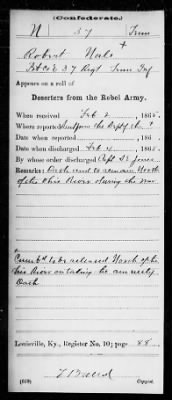 (Confederate.)
N 37 Tenn
Robert Nale
Pvt Co E 37 Regt Tenn Inf
Appears on a roll of
Deserters from the Rebel Army.
When received Feb 2, 1865.
Where reported Sent from the Dept of the
Date when reported , 186 .
Date when discharged Feb 4, 1865.
By whose order discharged Capt S. E. Jones
Remarks: Oath and to remain North
of the Ohio River during the war
to be released North of the
Ohio River on taking the amnesty
Oath
Louisville, Ky., Register No. 10; page 88
(639) Copyist.